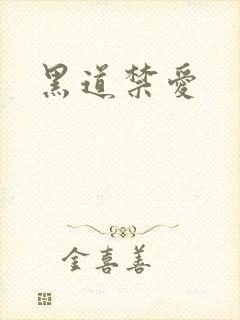 黑道禁愛
金喜善